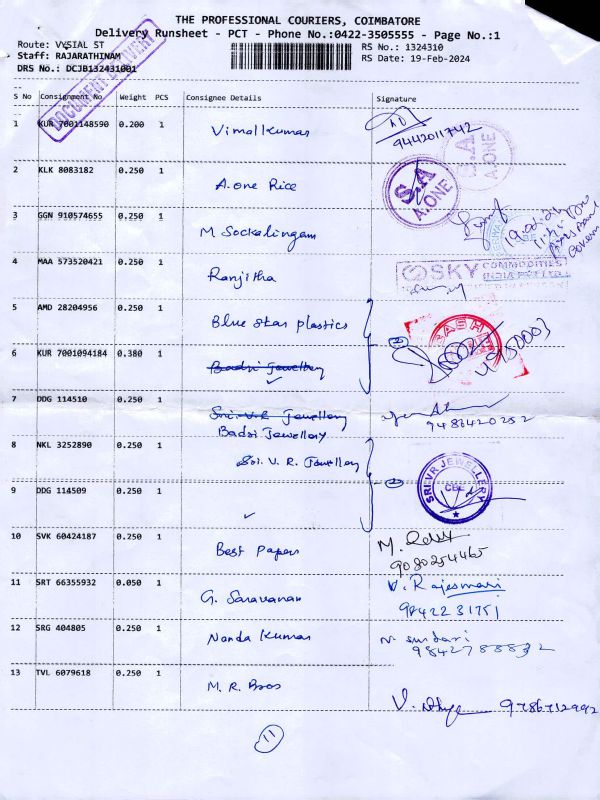 THE PROFESSIONAL COURIERS, COIMBATORE
Delivery Runsheet - PCT - Phone No.:0422-3505555 - Page No.:1
Route: VYSIAL ST
Staff: RAJARATHINAM
DRS No.: DCJB132431001
RS No.: 1324310
RS Date: 19-Feb-2024
DOCUMENT DELIVERY
S No Consignment No Weight PCS Consignee Details Signature
1 KUR 7001148590 0.200 1 Vimalkumar 9442011742
S.A A.ONE
2 KLK 8083182 0.250 1 A.one Rice
S.A A.ONE
3 GGN 910574655 0.250 1 M Sockalingam
4 MAA 573520421 0.250 1 Ranjitha
SKY COMMODITIES INDIA PVT LTD
5 AMD 28204956 0.250 1 Blue star plastics
6 KUR 7001094184 0.380 1 Badri Jewellery
7 DDG 114510 0.250 1 Sri. V.R Jewellery
Badri Jewellery
9486420252
8 NKL 3252890 0.250 1 Sri. V. R. Jewellery
SRI VR JEWELLERY CBE
9 DDG 114509 0.250 1
10 SVK 60424187 0.250 1 Best Papers
9080254465
11 SRT 66355932 0.050 1 G. Saravanan V. Rajesmari
9842231751
12 SRG 404805 0.250 1 Nanda Kumar N. Sundari
9842788832
13 TVL 6079618 0.250 1 M. R. Bros
9786712992
11